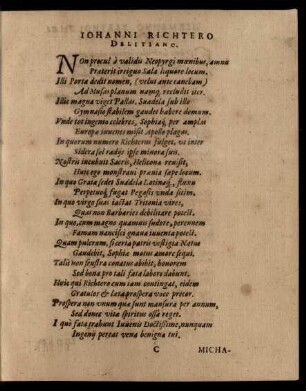 IOHANNI RICHTERO
DELITIANO.
NOn procul à validis Neopyrgi mœnibus, amnis
Præterit irriguo Sala liquore locum.
Illi Porta dedit nomen, (velut ante canebam)
Ad Musas planum namq́; recludit iter.
Illic magna viget Pallas, Suadela sub illo
Gymnasio stabilem gaudet habere domum.
Vnde tot ingenio celebres, Sophiaq́; per amplas
Europæ iuuenes misit Apollo plagas.
In quorum numero Richterus fulget, vt inter
Sidera sol radijs ipse minora suis.
Nostris incubuit Sacris, Helicona reuisit,
Huic ego monstrani prænia sæpe locum.
In quo Graia sedet Suadela Latinaq́;, fluru
Perpetuoq́; fugat Pegasis vnda sitim.
In quo virgo suas iactat Tritonia vires,
Quas non Barbaries debilitare potest.
In quo, cum magno quamuis sudore, perennem
Famam nancisci gnaua iuuenta potest.
Quam pulcrum, si certa patris vestigia Natus
Gaudebit, Sophiæ motus amore sequi.
Talis non frustra conatus abibit, honorem
Sed bona pro tali fata labore dabunt.
Huic qui Richtero cum iam contingat, eidem
Gratulor & læta prospera voce precor.
Prospera non vnum quæ sunt mansura per annum,
Sed donec vitæ spiritus ossa reget.
I quò fata trahunt Iuuenis Doctissime, nunquam
Ingenij pereat vena benigna tui.
C MICHA-